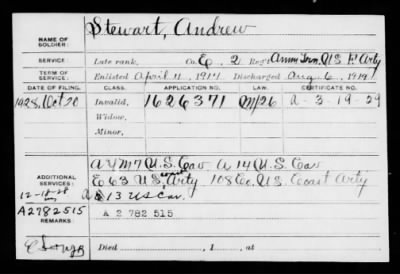 NAME OF SOLDIER: Stewart, Andrew
SERVICE: Late rank, Co. E, 2 Reg't Amm Trn. U.S. F. Arty
TERM OF SERVICE: Enlisted April 11, 1917 Discharged Aug 6, 1919
DATE OF FILING. CLASS. APPLICATION NO. LAW. CERTIFICATE NO.
1928, Oct 20 Invalid, 1626371 A-3-19-29
Widow,
Minor,
A & M 7 U.S. Cav A 14 U.S. Cav
ADDITIONAL SERVICES: E 63 U.S. Arty. 108 Co. U.S. Coast Arty
12-18-28 13 U S Cav.
A2782515 A 2 782 515
REMARKS:
Died , 1 , at